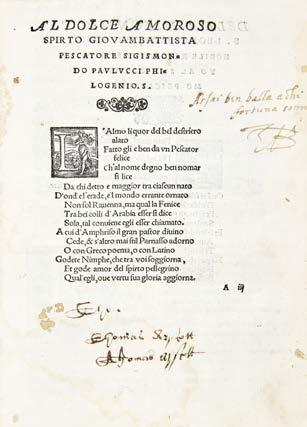 AL DOLCE AMOROSO
SPIRTO GIOVAMBATTISTA
PESCATORE SIGISMON=
DO PAVLVCCI PHI=
LOGENIO. S.
Assai ben balla a chi
fortuna
L'Almo liquor del bel destriero
alato
Fatto gli e ben da vn Pescator
felice
Ch'al nome degno ben nomar
si lice
Da chi detro e maggior tra ciascun nato
D'ond'el'erade, e'l mondo errante ornato
Non sol Rauenna, ma qual la Fenice
Tra bei colli d'Arabia esser si dice
Sola, tal conuiene egli esser chiamato.
A cui d'Amphriso il gran pastor diuino
Cede, & s'altro mai fu'l Parnasso adorno
O con Greco poema, o con Latino
Godete Nimphe, che tra voi soggiorna,
Et gode amor del spirto pellegrino
Qual egli, oue vertu sua gloria aggiorna.
A iij
Thomas
Thomas